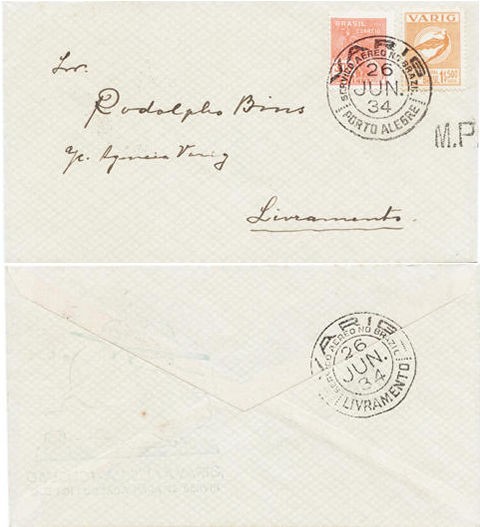 BRASIL CORREIO
VARIG
1$500
VARIG
SERVIÇO AEREO NO BRAZIL
26
JUN.
34
PORTO ALEGRE
M.P.
Snr.
Rodolpho Bins
p/c. Agencia Varig
Livramento.
VARIG
SERVIÇO AEREO NO BRAZIL
26
JUN.
34
LIVRAMENTO